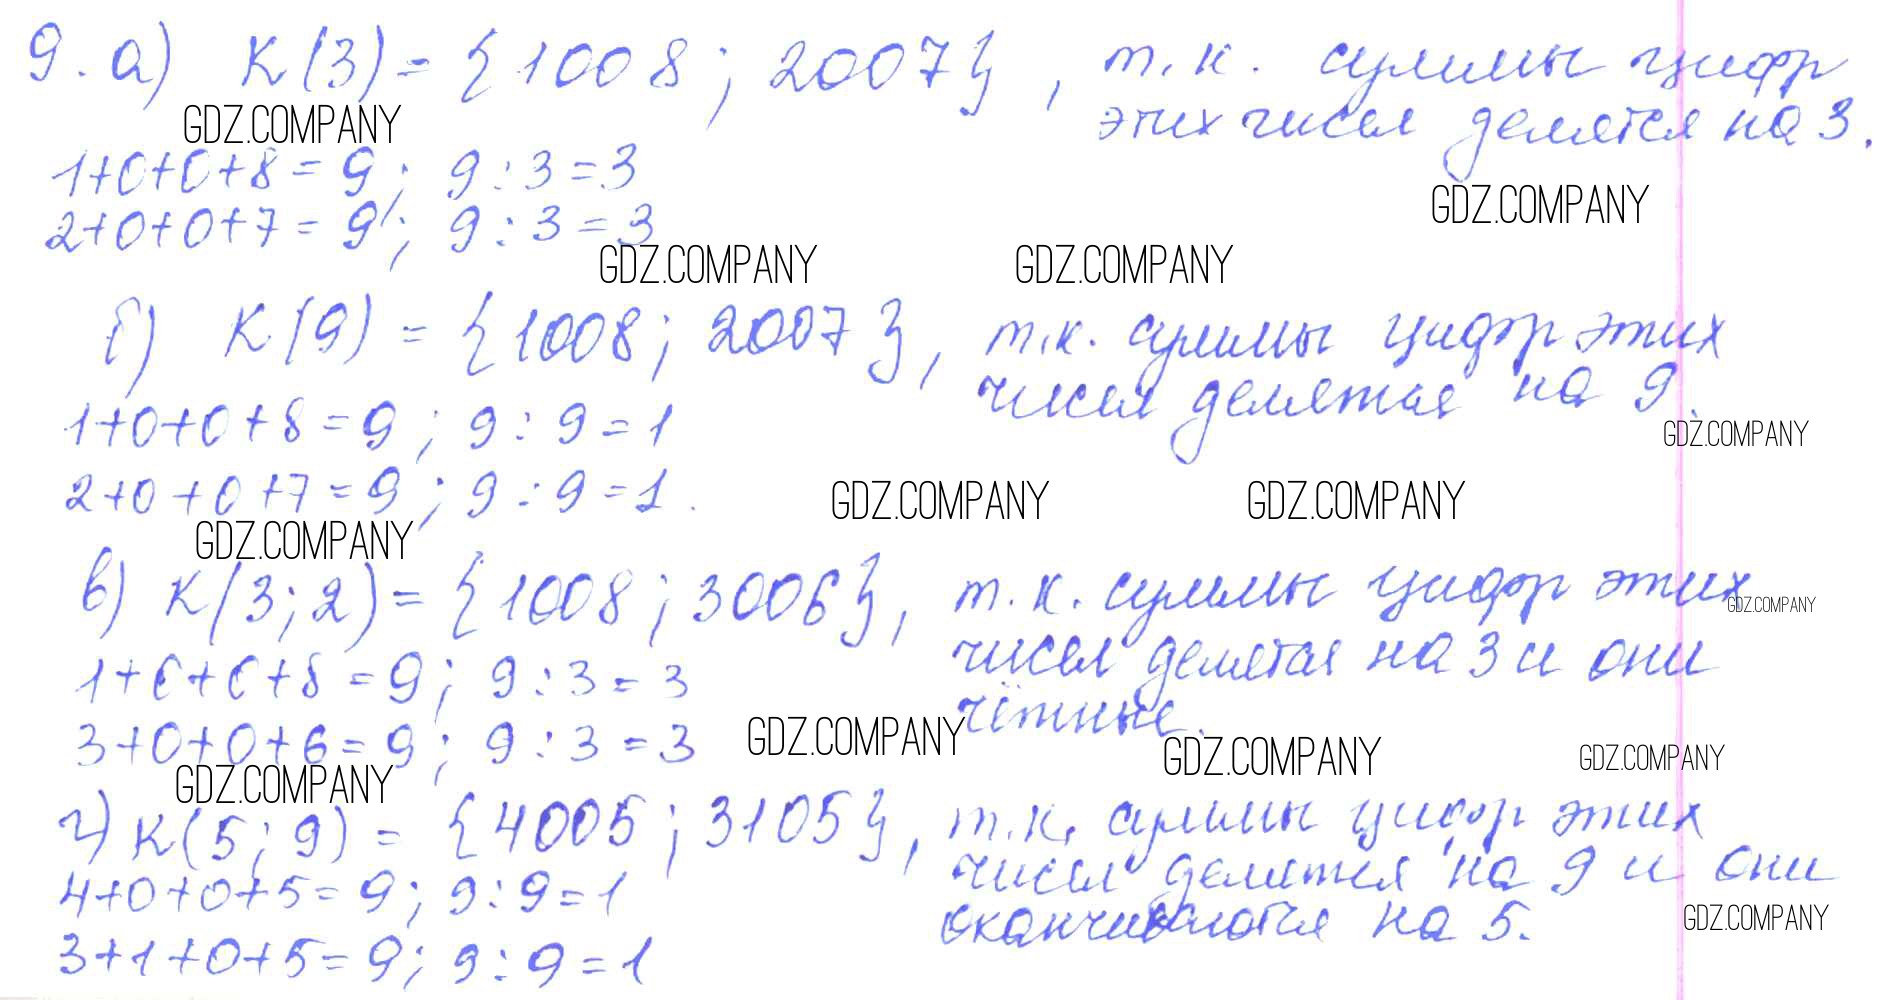 9. а) К(3) = {1008; 2007}, т.к. суммы цифр
этих чисел делятся на 3.
GDZ.COMPANY
1+0+0+8=9; 9:3=3
GDZ.COMPANY
2+0+0+7=9; 9:3=3
GDZ.COMPANY GDZ.COMPANY
б) К(9) = {1008; 2007}, т.к. суммы цифр этих
чисел делятся на 9.
1+0+0+8=9; 9:9=1
GDZ.COMPANY
2+0+0+7=9; 9:9=1.
GDZ.COMPANY GDZ.COMPANY
GDZ.COMPANY
в) К(3;2)= {1008; 3006}, т.к. суммы цифр этих
GDZ.COMPANY
чисел делятся на 3 и они
1+0+0+8=9; 9:3=3
чётные.
3+0+0+6=9; 9:3=3
GDZ.COMPANY GDZ.COMPANY GDZ.COMPANY
GDZ.COMPANY
г) К(5;9) = {4005; 3105}, т.к. суммы цифр этих
чисел делятся на 9 и они
4+0+0+5=9; 9:9=1
оканчиваются на 5.
GDZ.COMPANY
3+1+0+5=9; 9:9=1